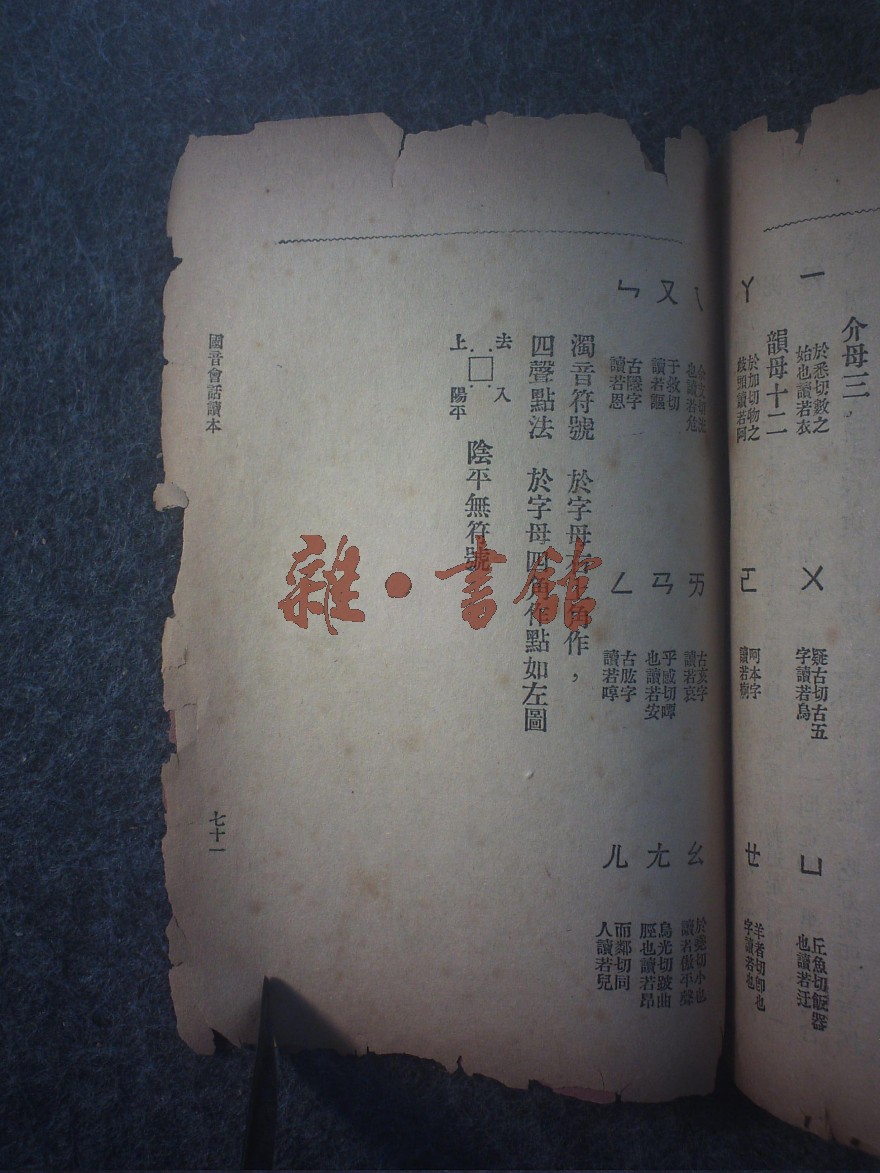 介母三，
一 於悉切數之始也讀若衣
ㄨ 疑古切古五字讀若烏
ㄩ 丘魚切飯器也讀若迂
韻母十二
ㄚ 於加切物之歧頭讀若阿
ㄛ 呵本字讀若
ㄝ 羊者切卽也字讀若也
ㄟ 也讀若危
ㄞ 古亥字讀若哀
ㄠ 於堯切小也讀若傲平聲
ㄡ 于救切讀若謳
ㄢ 乎感切嘾也讀若安
ㄤ 烏光切跛曲脛也讀若昂
ㄣ 古隱字讀若恩
ㄥ 古肱字讀若哼
ㄦ 而鄰切同人讀若兒
濁音符號 於字母右上角作，
四聲點法 於字母四角作點如左圖
陰平無符號
去 入
上 陽平
國音會話讀本
七十一
雜·書館